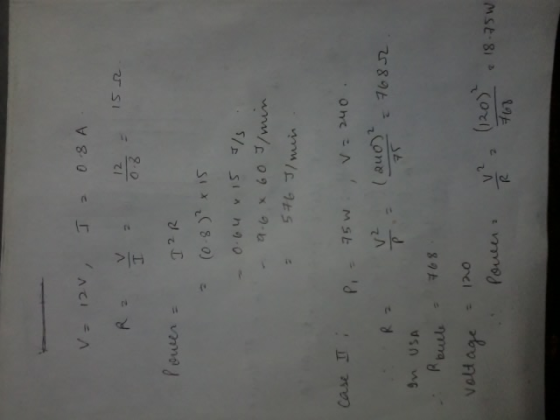 V = 12V, I = 0.8 A.
R = V/I = 12/0.8 = 15 Ω
Power = I²R
= (0.8)² × 15
- 0.64 × 15 J/s
- 9.6 × 60 J/min
= 576 J/min.
Case II: P₁ = 75W ; V = 240.
∴ R = V²/P = (240)²/75 = 768Ω.
In USA
∴ R = 768
Voltage = 120
∴ Power = V²/R = (120)²/768 = 18.75W